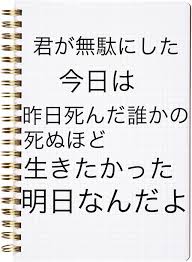 君が無駄にした
今日は
昨日死んだ誰かの
死ぬほど
生きたかった
明日なんだよ